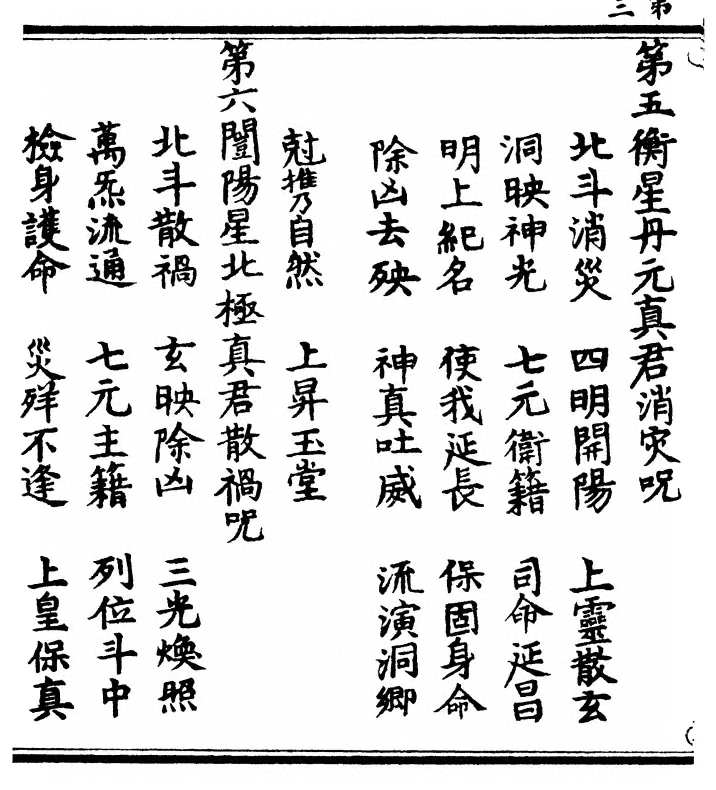 第三
第五衡星丹元真君消灾呪
北斗消災 四明開陽 上靈散玄
洞映神光 七元衛籍 司命延昌
明上紀名 使我延長 保固身命
除凶去殃 神真吐威 流演洞鄉
尅攜自然 上昇玉堂
第六闓陽星北極真君散禍呪
北斗散禍 玄映除凶 三光煥照
萬炁流通 七元主籍 列位斗中
檢身護命 災殃不逢 上皇保真